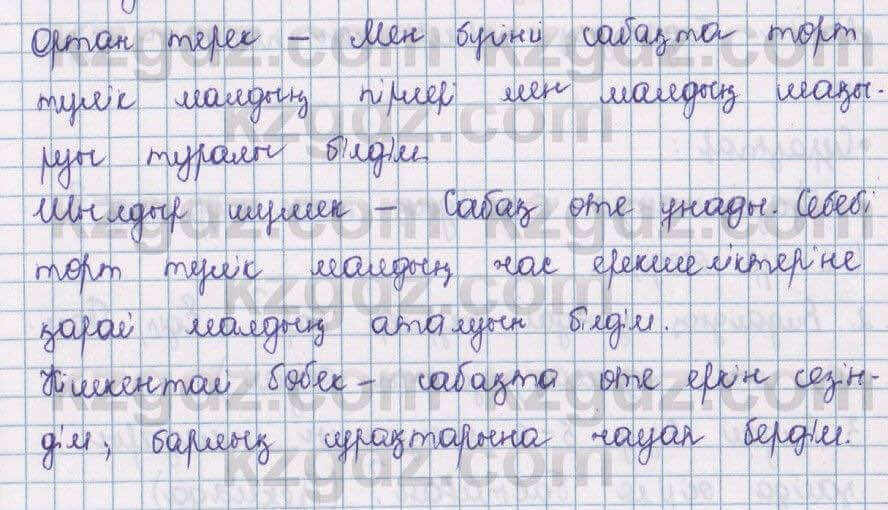 Ортан терек – Мен бүгінгі сабақта төрт
түлік малдың пірлері мен малдың шақы-
руы туралы білдім.
Шылдыр шүмек – Сабақ өте ұнады. Себебі
төрт түлік малдың жас ерекшеліктеріне
қарай малдың аталуын білдім.
Кішкентай бөбек – сабақта өте еркін сезін-
дім, барлық сұрақтарына жауап бердім.
kzgdz.com